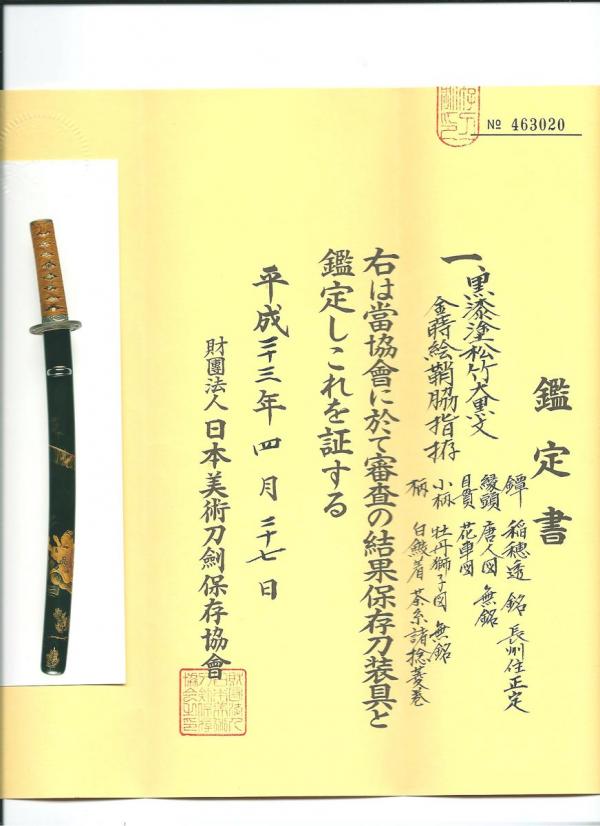 № 463020
鑑定書
一、黒漆塗松竹大黒文
金蒔絵鞘脇指拵
鐔 稲穂透 銘 長州住正定
縁頭 唐人図 無銘
目貫 花車図
小柄 牡丹獅子図 無銘
柄 白鮫着 茶糸諸捻菱巻
右は當協會に於て審査の結果保存刀装具と
鑑定しこれを証する
平成二十三年四月二十七日
財團法人日本美術刀劍保存協會